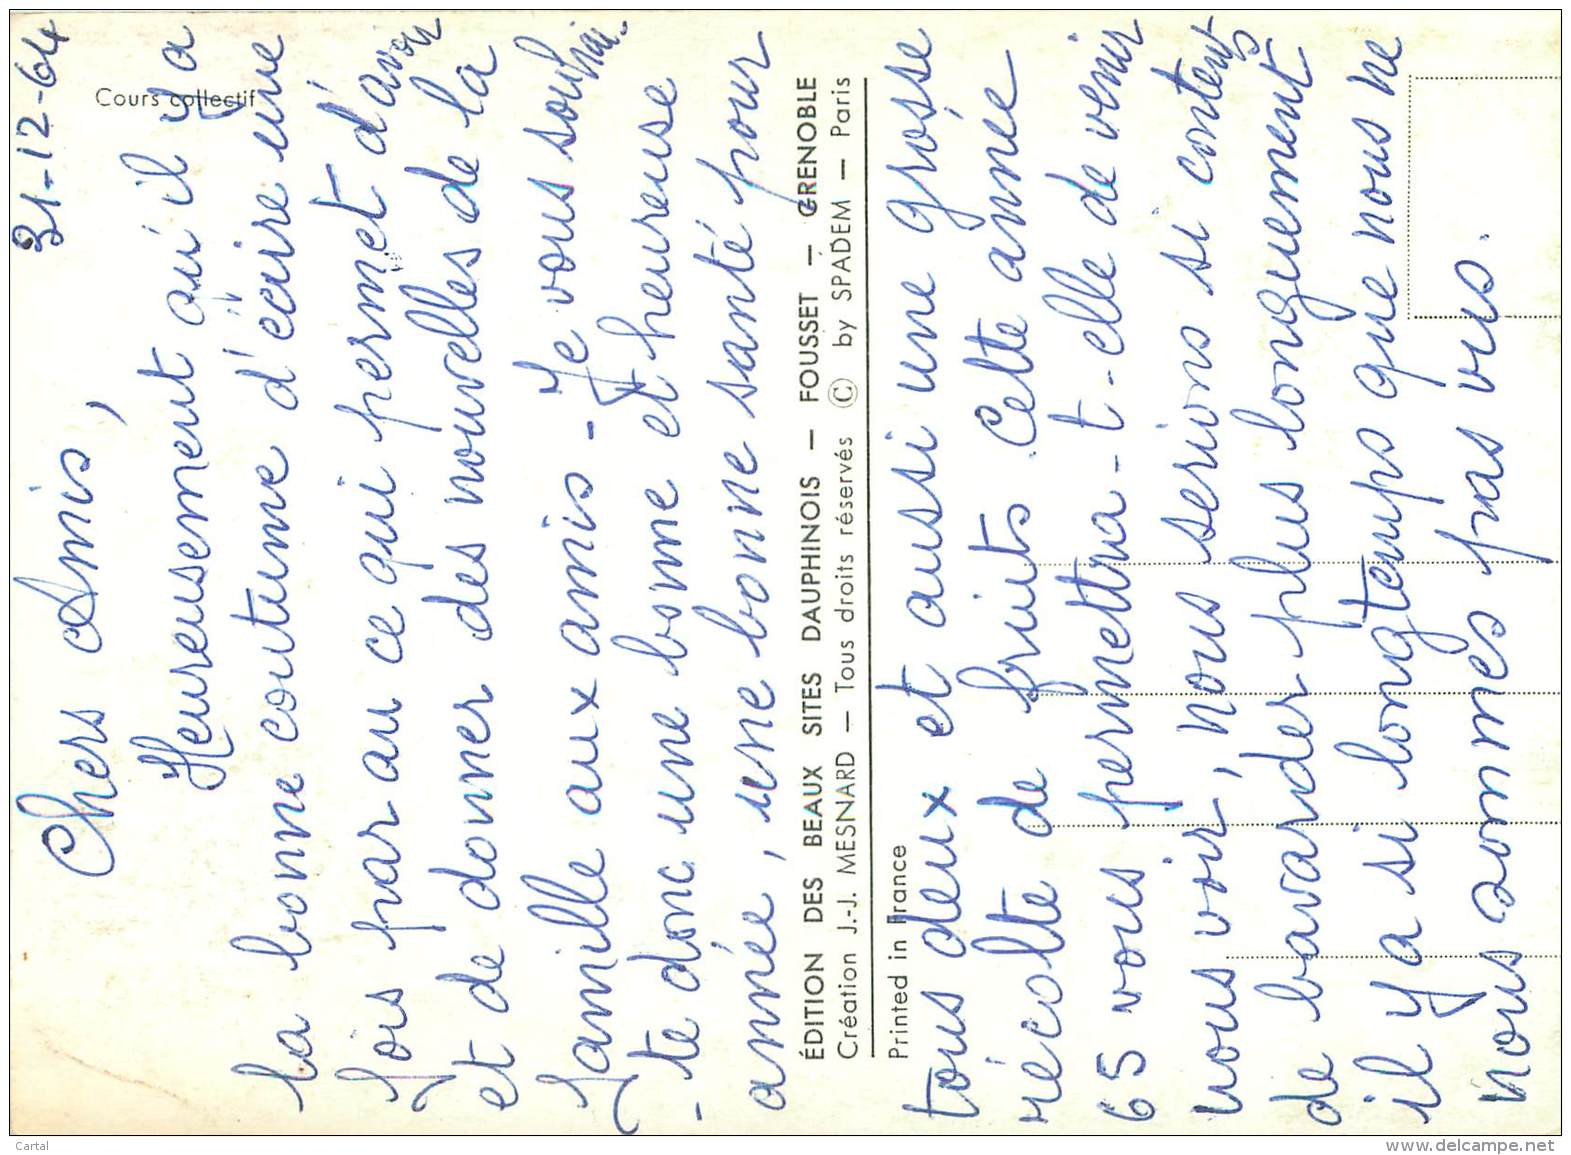 31-12-64
Cours collectif
Chers Amis,
Heureusement qu'il y a
la bonne coutume d'écrire une
fois par an ce qui permet d'avoir
et de donner des nouvelles de la
famille aux amis - Je vous souhai-
-te donc une bonne et heureuse
année, une bonne santé pour
ÉDITION DES BEAUX SITES DAUPHINOIS — FOUSSET — GRENOBLE
Création J.-J. MESNARD — Tous droits réservés © by SPADEM — Paris
Printed in France
tous deux et aussi une grosse
récolte de fruits. Cette année
65 vous permettra-t-elle de venir
nous voir, nous serions si contents
de bavarder plus longuement
il y a si longtemps que nous ne
nous sommes pas vus.
Cartal
www.delcampe.net